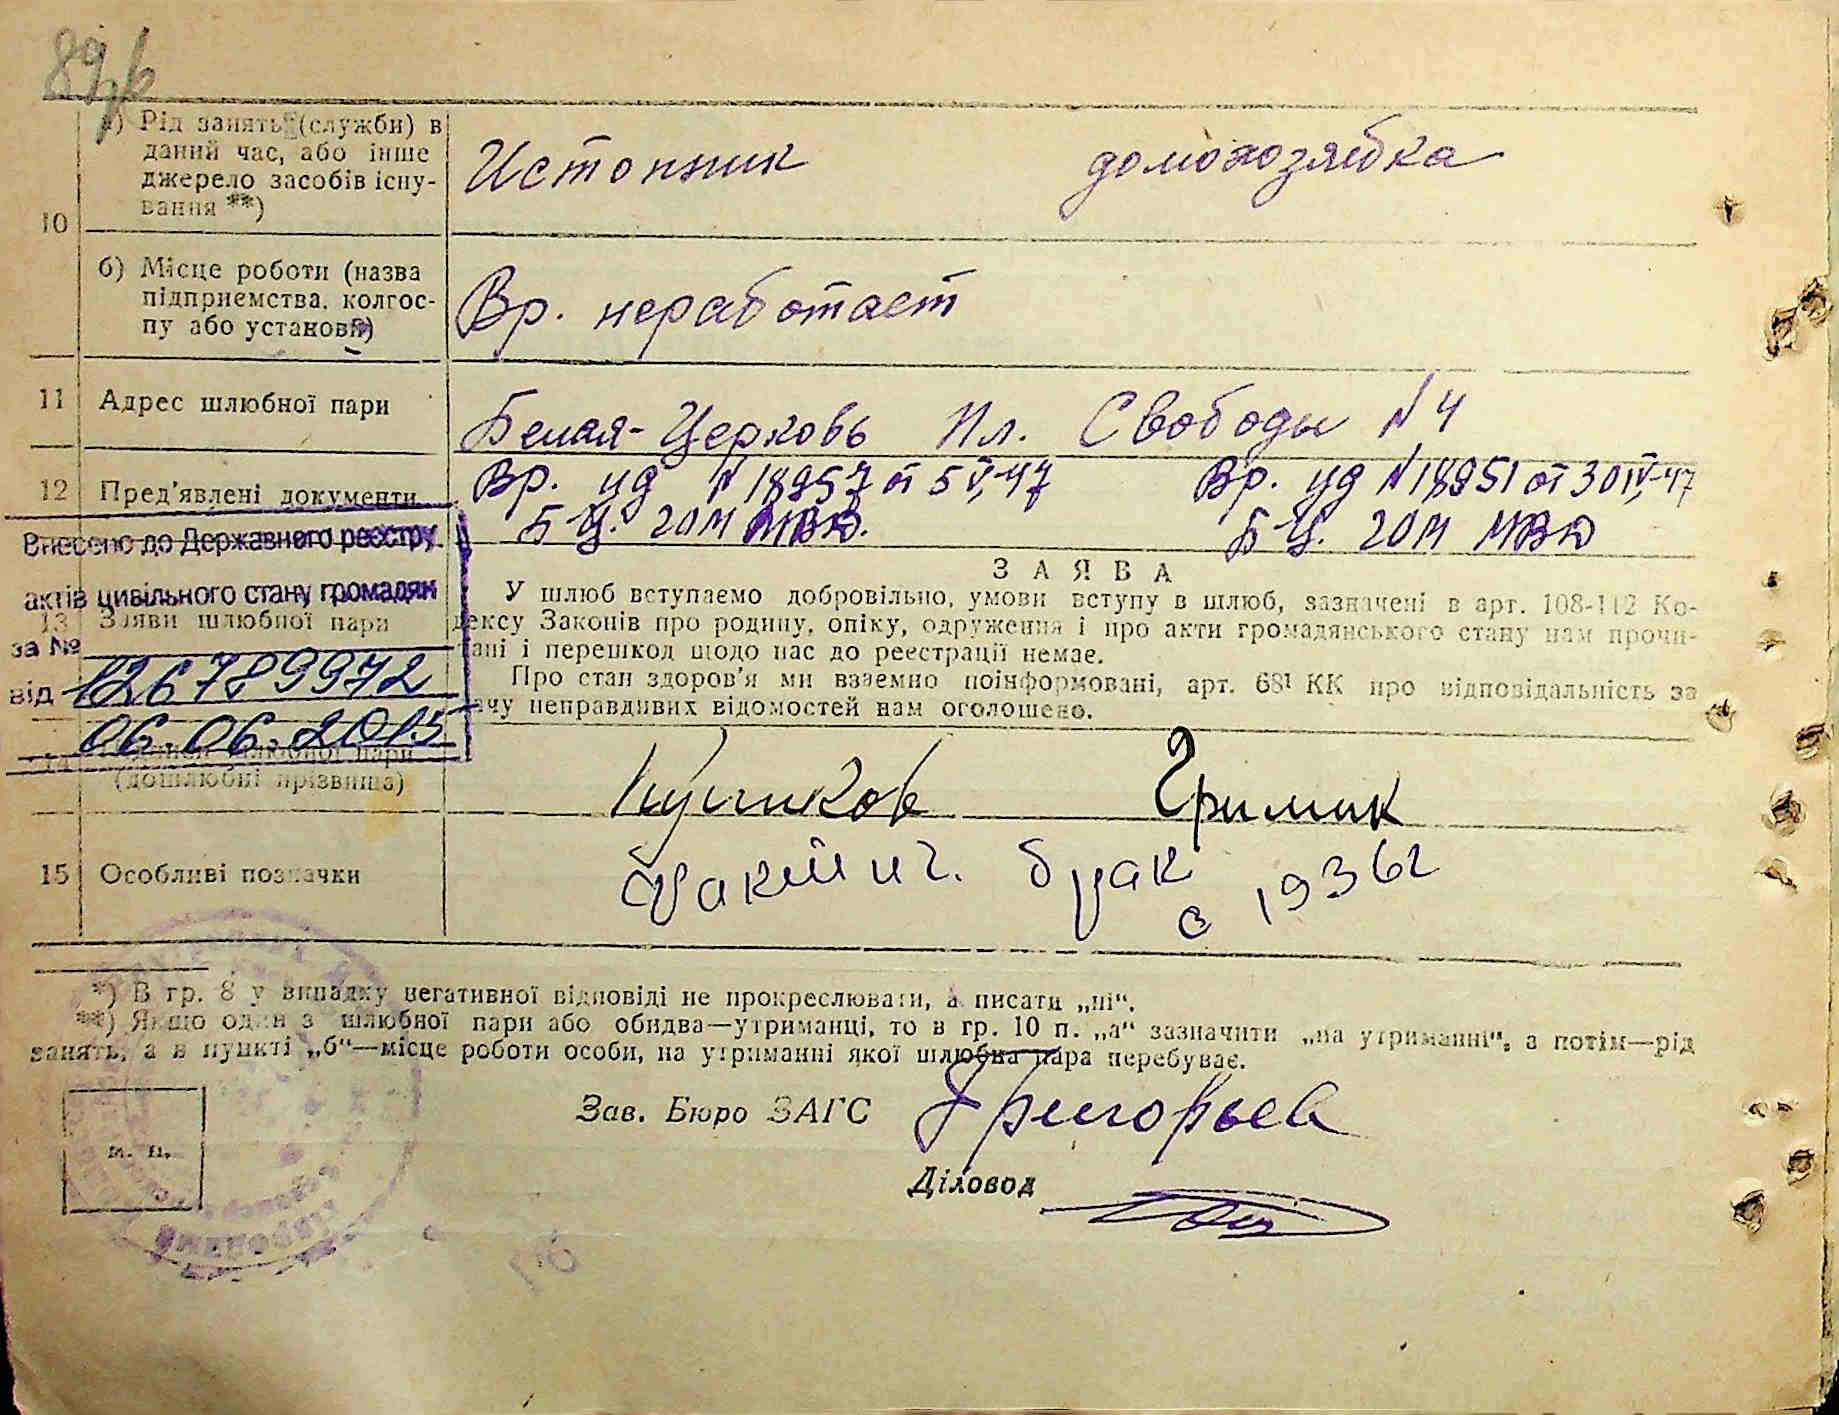 а) Рід занять (служби) в
даний час, або інше
джерело засобів існу-
вання **)
Истопник домохозяйка
10
б) Місце роботи (назва
підприємства, колгос-
пу або установи)
Вр. неработает
11 Адрес шлюбної пари
Белая-Церковь Пл. Свободы N 4
12 Пред'явлені документи
Вр. уд N 18957 от 5 V-47 Вр. уд N 18951 от 30 IV-47
Б Ц. ГОМ МВД. Б Ц. ГОМ МВД
Внесено до Державного реєстру
актів цивільного стану громадян
за №
126789972
від
06.06.2015
13 Заяви шлюбної пари
ЗАЯВА
У шлюб вступаємо добровільно, умови вступу в шлюб, зазначені в арт. 108-112 Ко-
дексу Законів про родину, опіку, одруження і про акти громадянського стану нам прочи-
тані і перешкод щодо нас до реєстрації немає.
Про стан здоров'я ми взаємно поінформовані, арт. 68¹ КК про відповідальність за
дачу неправдивих відомостей нам оголошено.
14 шлюбної пари
(дошлюбні прізвища)
Гримик
15 Особливі позначки
брак с 1936 г
*) В гр. 8 у випадку негативної відповіді не прокреслювати, а писати „ні".
**) Якщо один з шлюбної пари або обидва—утриманці, то в гр. 10 п. „а" зазначити „на утриманні", а потім—рід
занять, а в пункті „б"—місце роботи особи, на утриманні якої шлюбна пара перебуває.
Зав. Бюро ЗАГС Григорьев
м. п.
Діловод